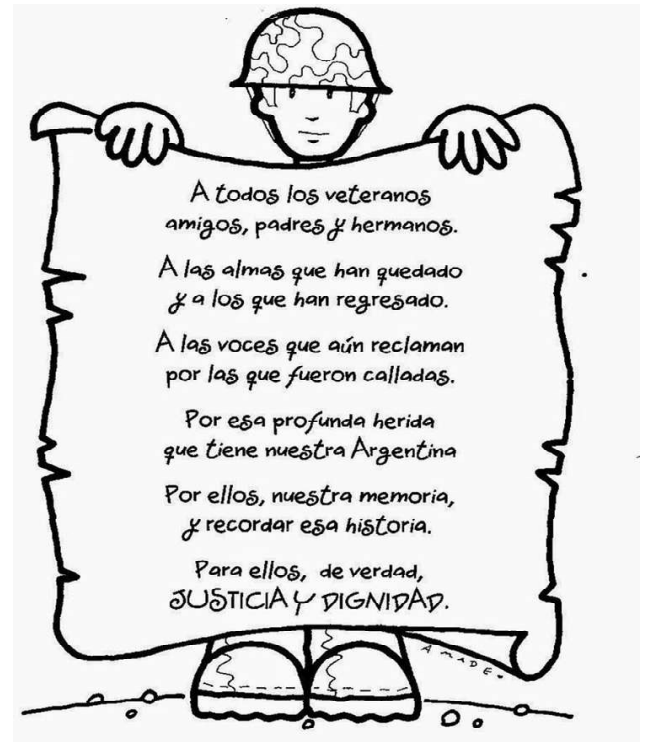 A todos los veteranos
amigos, padres y hermanos.
A las almas que han quedado
y a los que han regresado.
A las voces que aún reclaman
por las que fueron calladas.
Por esa profunda herida
que tiene nuestra Argentina
Por ellos, nuestra memoria,
y recordar esa historia.
Para ellos, de verdad,
JUSTICIA Y DIGNIDAD.
AMADEO